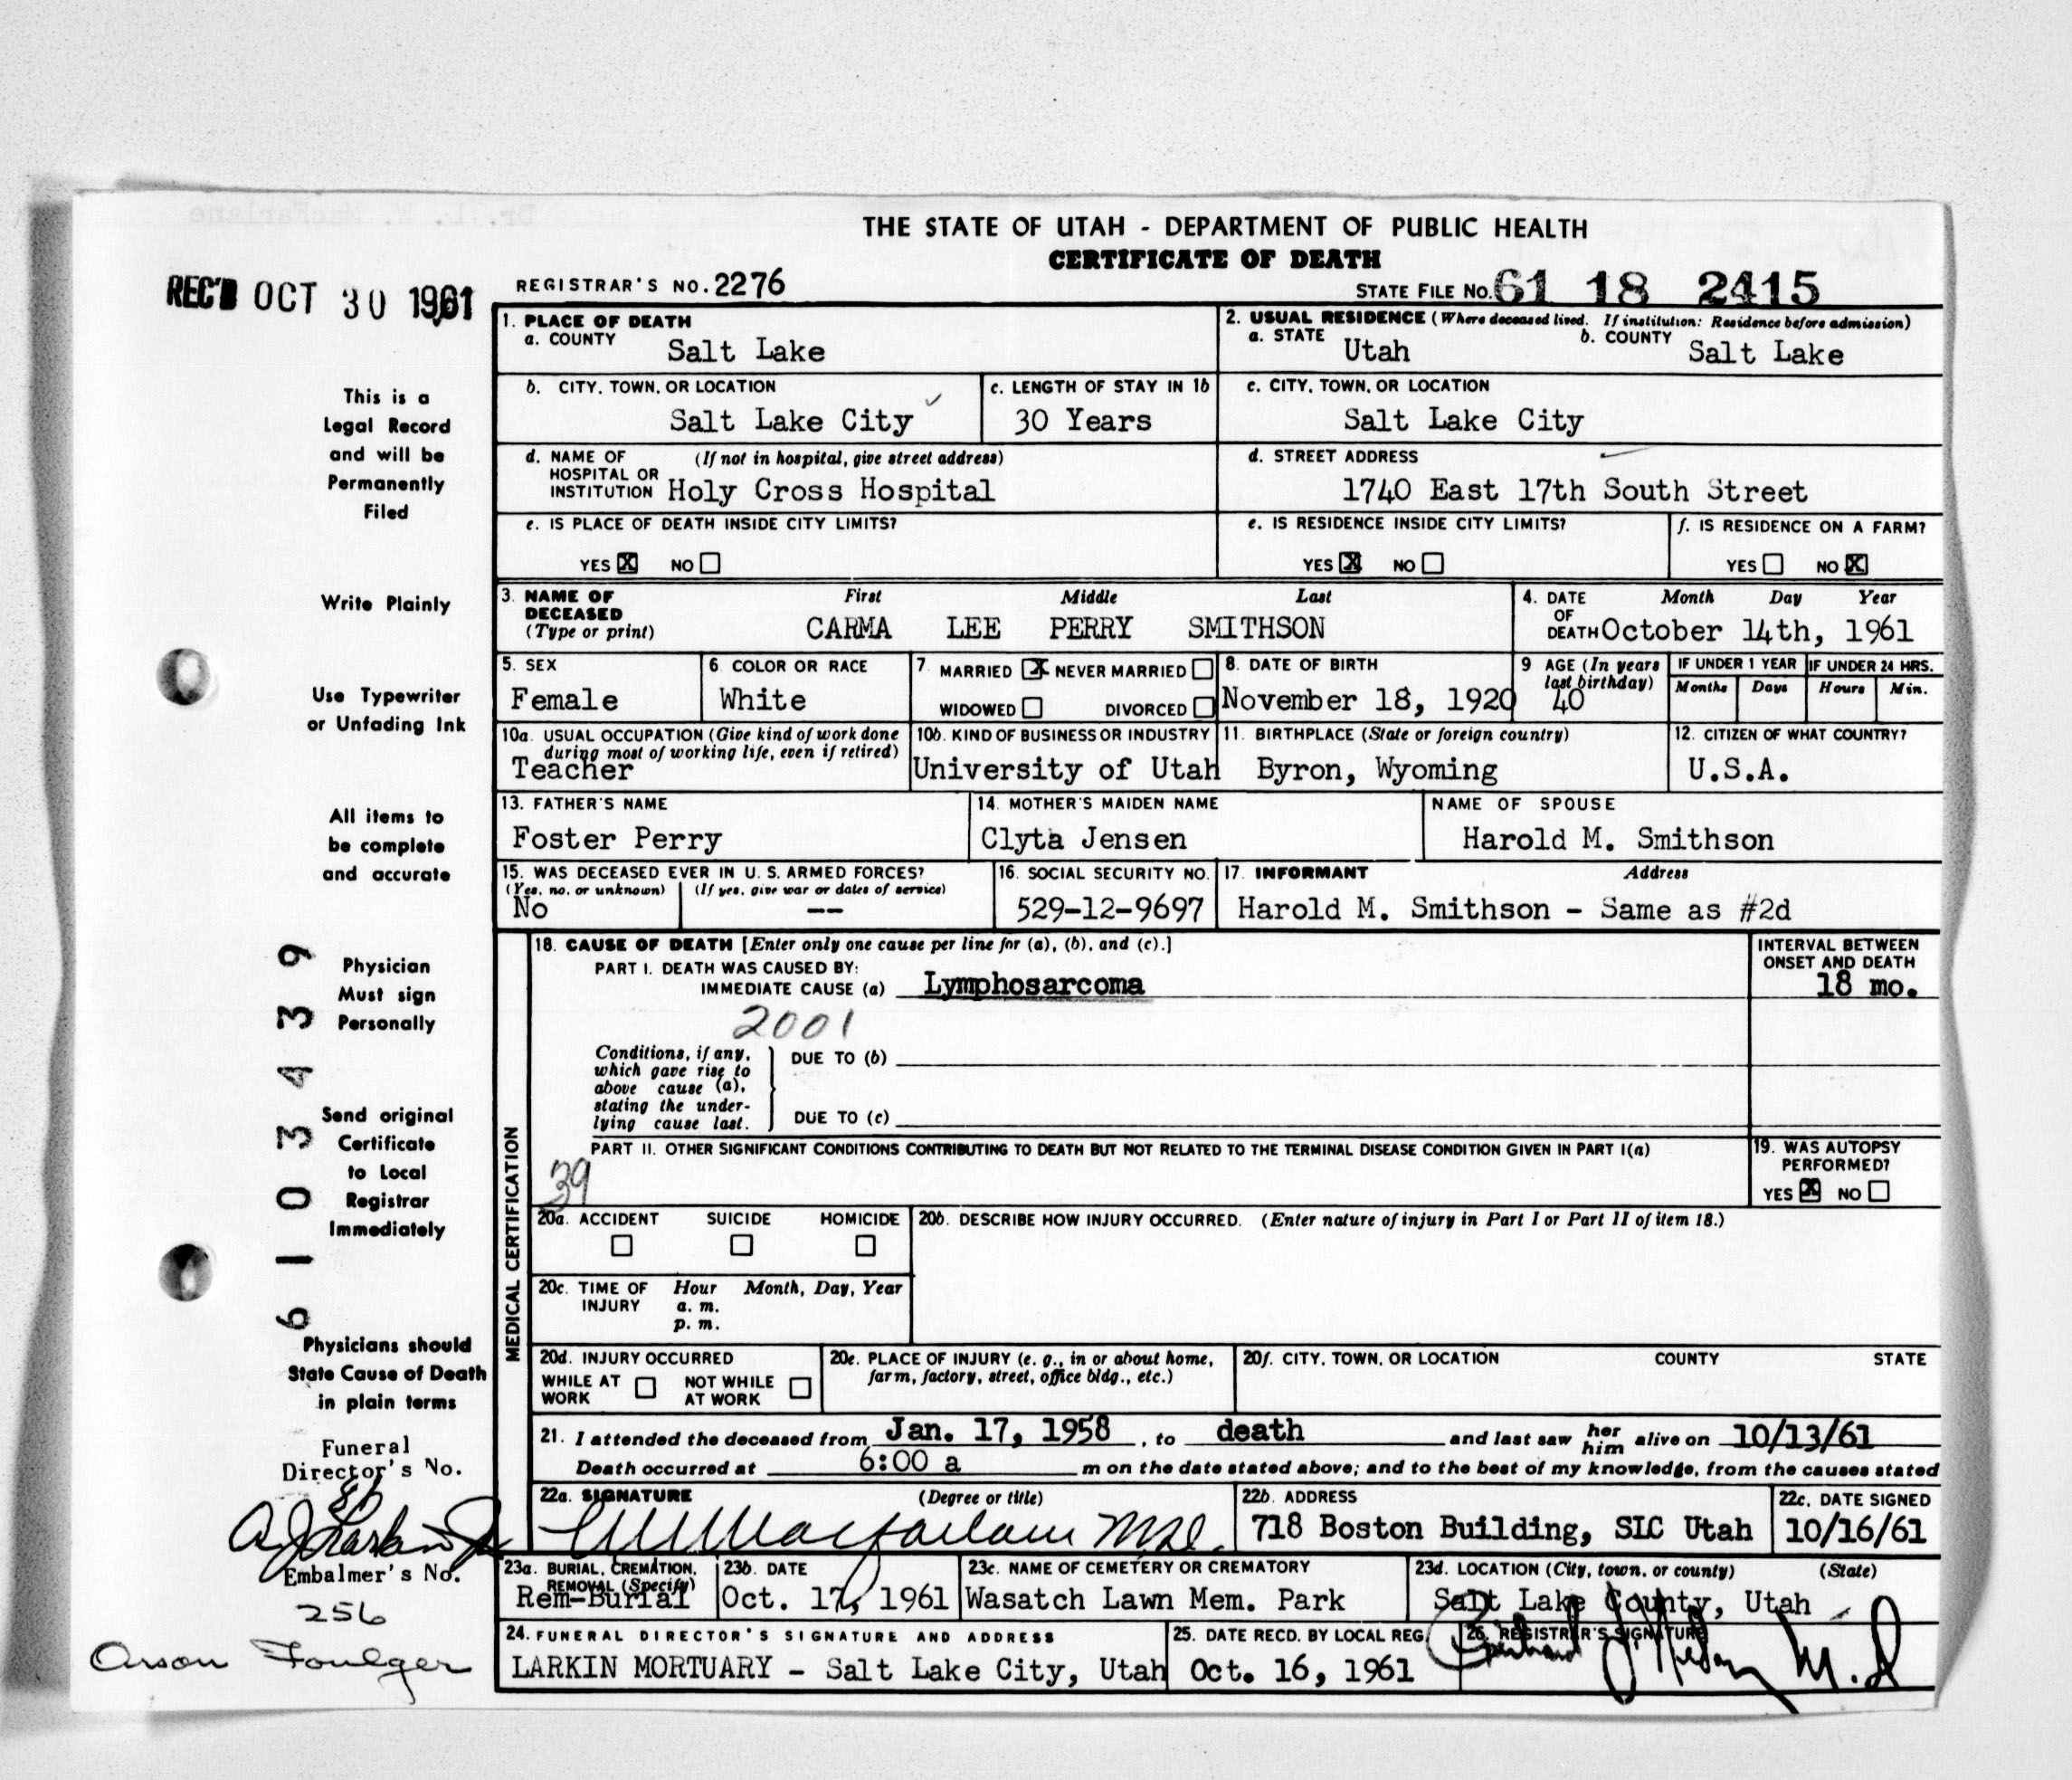 THE STATE OF UTAH - DEPARTMENT OF PUBLIC HEALTH
CERTIFICATE OF DEATH
REC'D OCT 30 1961
REGISTRAR'S NO. 2276
STATE FILE NO. 61 18 2415
This is a
Legal Record
and will be
Permanently
Filed
Write Plainly
Use Typewriter
or Unfading Ink
All items to
be complete
and accurate
Physician
Must sign
Personally
Send original
Certificate
to Local
Registrar
Immediately
Physicians should
State Cause of Death
in plain terms
6 1 0 3 4 3 9
Funeral
Director's No.
Embalmer's No.
256
Orson Foulger
1. PLACE OF DEATH
a. COUNTY Salt Lake
2. USUAL RESIDENCE (Where deceased lived. If institution: Residence before admission)
a. STATE Utah b. COUNTY Salt Lake
b. CITY, TOWN, OR LOCATION Salt Lake City
c. LENGTH OF STAY IN 1b 30 Years
c. CITY, TOWN, OR LOCATION Salt Lake City
d. NAME OF HOSPITAL OR INSTITUTION (If not in hospital, give street address) Holy Cross Hospital
d. STREET ADDRESS 1740 East 17th South Street
e. IS PLACE OF DEATH INSIDE CITY LIMITS?
YES X NO
e. IS RESIDENCE INSIDE CITY LIMITS?
YES X NO
f. IS RESIDENCE ON A FARM?
YES NO X
3. NAME OF DECEASED (Type or print) First Middle Last
CARMA LEE PERRY SMITHSON
4. DATE OF DEATH Month Day Year
October 14th, 1961
5. SEX Female
6. COLOR OR RACE White
7. MARRIED X NEVER MARRIED
WIDOWED DIVORCED
8. DATE OF BIRTH November 18, 1920
9 AGE (In years last birthday) 40
IF UNDER 1 YEAR Months Days
IF UNDER 24 HRS. Hours Min.
10a. USUAL OCCUPATION (Give kind of work done during most of working life, even if retired)
Teacher
10b. KIND OF BUSINESS OR INDUSTRY
University of Utah
11. BIRTHPLACE (State or foreign country)
Byron, Wyoming
12. CITIZEN OF WHAT COUNTRY?
U.S.A.
13. FATHER'S NAME
Foster Perry
14. MOTHER'S MAIDEN NAME
Clyta Jensen
NAME OF SPOUSE
Harold M. Smithson
15. WAS DECEASED EVER IN U. S. ARMED FORCES?
(Yes, no, or unknown) (If yes, give war or dates of service)
No --
16. SOCIAL SECURITY NO.
529-12-9697
17. INFORMANT Address
Harold M. Smithson - Same as #2d
MEDICAL CERTIFICATION
18. CAUSE OF DEATH [Enter only one cause per line for (a), (b), and (c).]
PART I. DEATH WAS CAUSED BY:
IMMEDIATE CAUSE (a) Lymphosarcoma
INTERVAL BETWEEN
ONSET AND DEATH
18 mo.
2001
Conditions, if any,
which gave rise to
above cause (a),
stating the under-
lying cause last.
DUE TO (b)
DUE TO (c)
PART II. OTHER SIGNIFICANT CONDITIONS CONTRIBUTING TO DEATH BUT NOT RELATED TO THE TERMINAL DISEASE CONDITION GIVEN IN PART I(a)
39
19. WAS AUTOPSY
PERFORMED?
YES X NO
20a. ACCIDENT SUICIDE HOMICIDE
20b. DESCRIBE HOW INJURY OCCURRED. (Enter nature of injury in Part I or Part II of item 18.)
20c. TIME OF INJURY Hour Month, Day, Year
a. m.
p. m.
20d. INJURY OCCURRED
WHILE AT WORK NOT WHILE AT WORK
20e. PLACE OF INJURY (e. g., in or about home, farm, factory, street, office bldg., etc.)
20f. CITY, TOWN, OR LOCATION COUNTY STATE
21. I attended the deceased from Jan. 17, 1958, to death and last saw her him alive on 10/13/61
Death occurred at 6:00 a m on the date stated above; and to the best of my knowledge, from the causes stated
22a. SIGNATURE (Degree or title)
Macfarlane M.D.
22b. ADDRESS
718 Boston Building, SlC Utah
22c. DATE SIGNED
10/16/61
23a. BURIAL, CREMATION, REMOVAL (Specify)
Rem-Burial
23b. DATE
Oct. 17, 1961
23c. NAME OF CEMETERY OR CREMATORY
Wasatch Lawn Mem. Park
23d. LOCATION (City, town, or county) (State)
Salt Lake County, Utah
24. FUNERAL DIRECTOR'S SIGNATURE AND ADDRESS
LARKIN MORTUARY - Salt Lake City, Utah
25. DATE RECD. BY LOCAL REG.
Oct. 16, 1961
26. REGISTRAR'S SIGNATURE
M.D